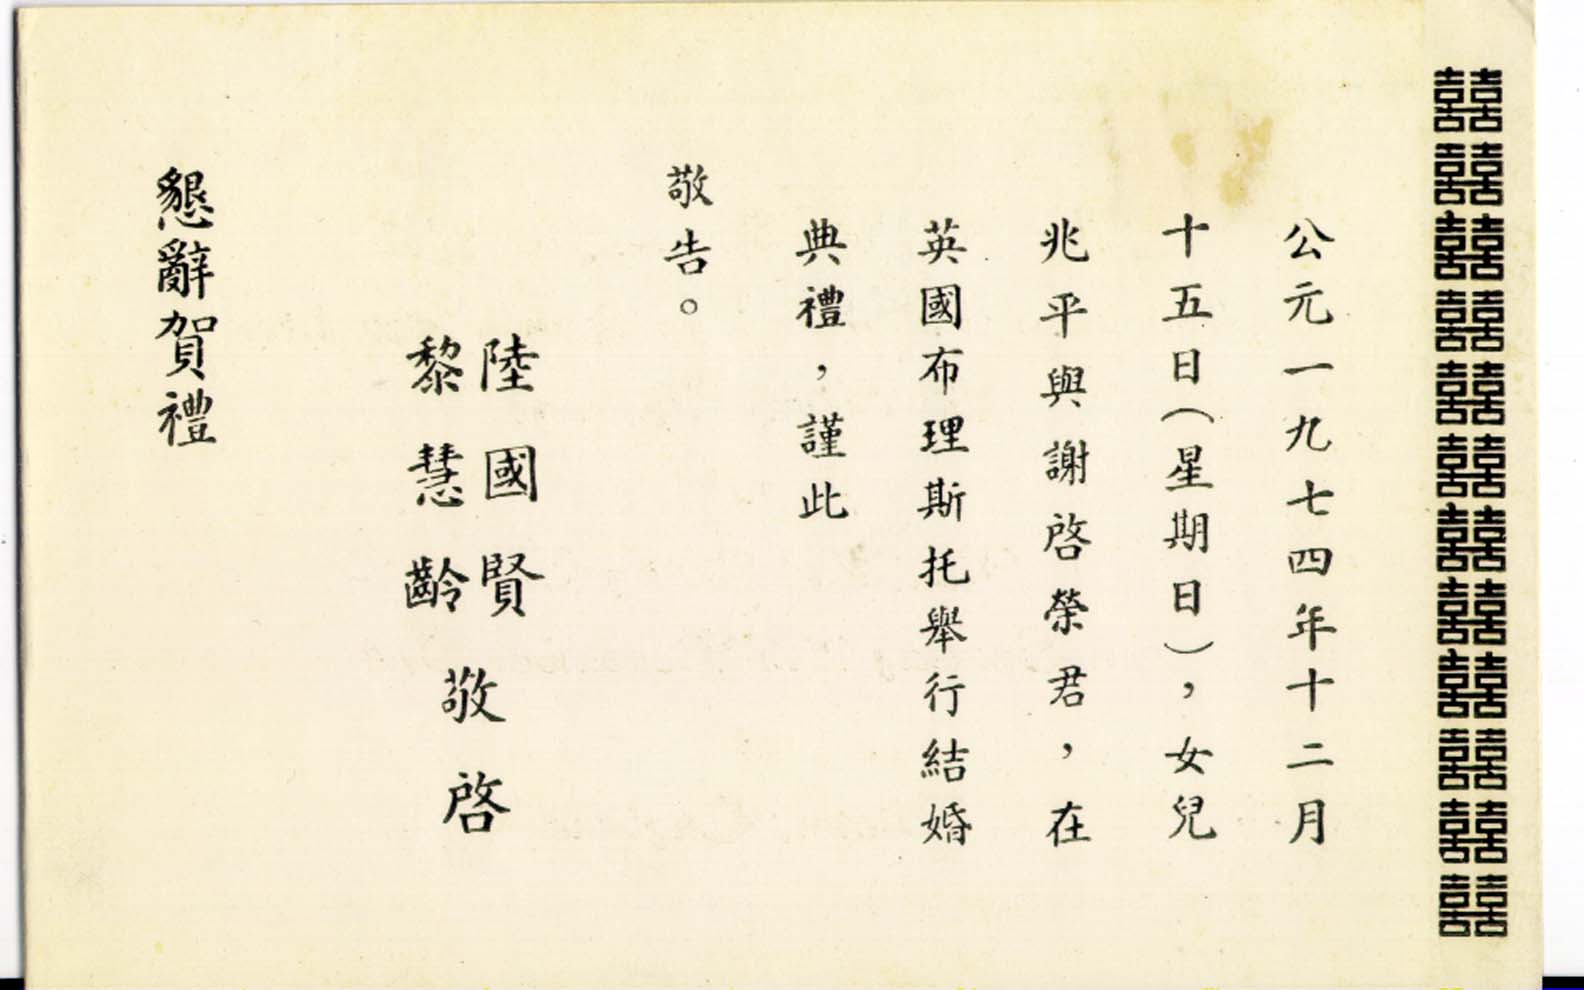 囍囍囍囍囍囍囍囍囍囍囍囍
公元一九七四年十二月
十五日(星期日),女兒
兆平與謝啓榮君,在
英國布理斯托舉行結婚
典禮,謹此
敬告。
陸國賢
黎慧齡
敬啓
懇辭賀禮